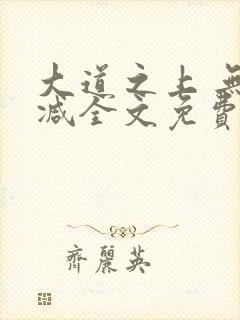 大道之上 無
減全文免費
齊麗英